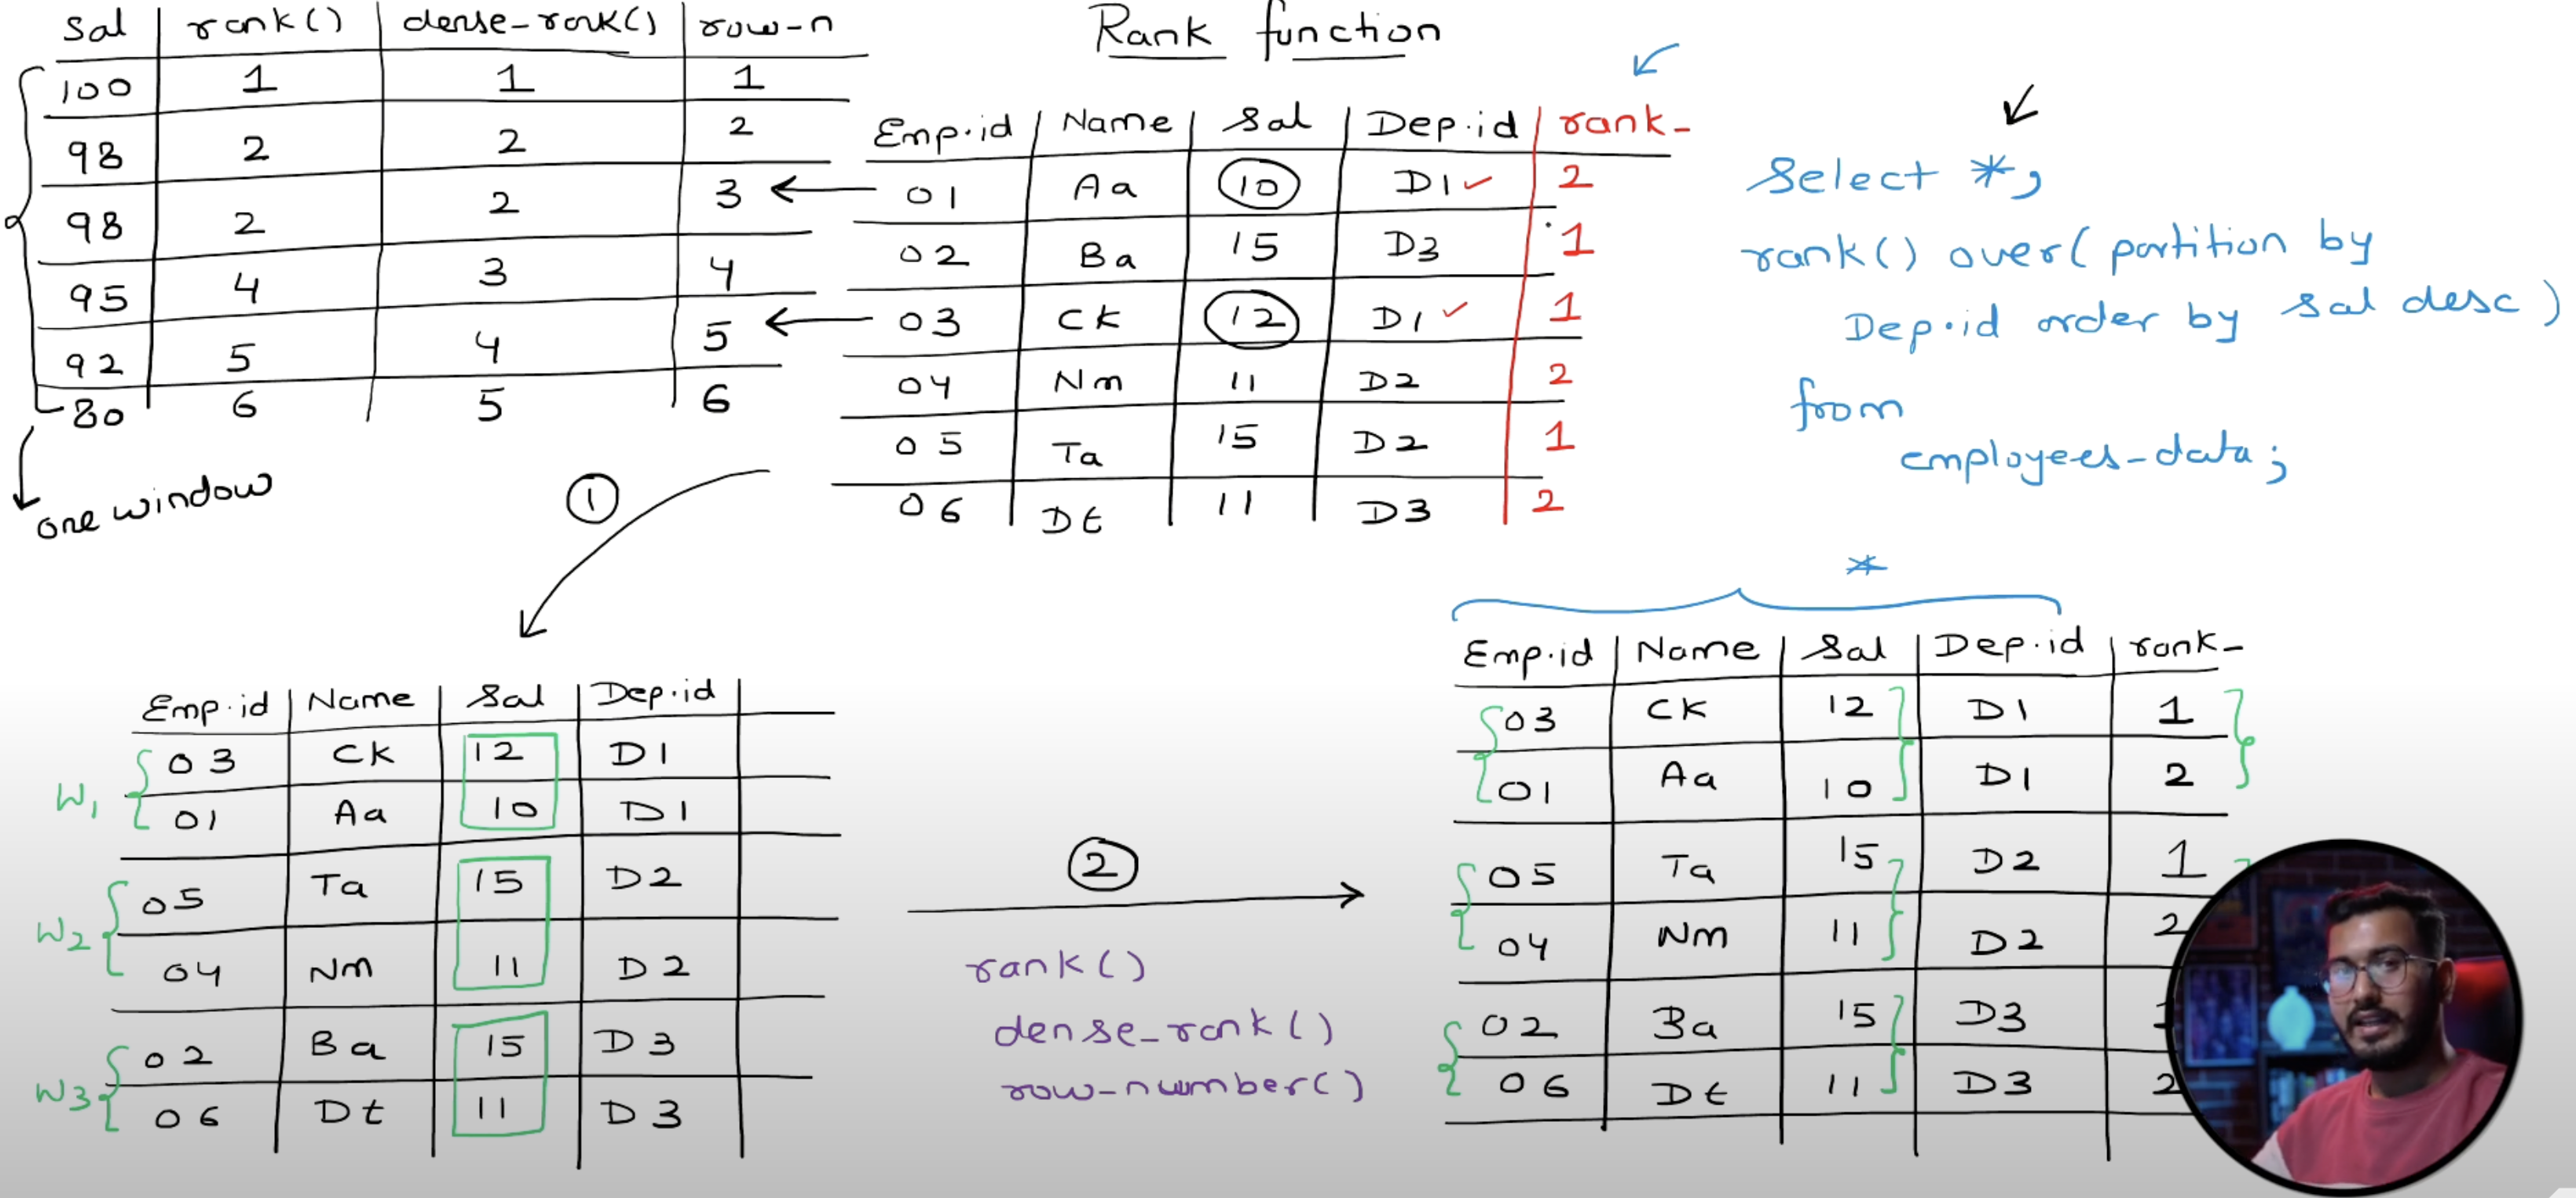 Rank function
Sal rank() dense_rank() row-n
100 1 1 1
98 2 2 2
98 2 2 3
95 4 3 4
92 5 4 5
80 6 5 6
one window
Emp.id Name Sal Dep.id rank_
01 Aa 10 D1 2
02 Ba 15 D3 1
03 Ck 12 D1 1
04 Nm 11 D2 2
05 Ta 15 D2 1
06 Dt 11 D3 2
Select *,
rank() over( partition by
Dep.id order by sal desc )
from
employees-data;
1
Emp.id Name Sal Dep.id
W1
03 Ck 12 D1
01 Aa 10 D1
W2
05 Ta 15 D2
04 Nm 11 D2
W3
02 Ba 15 D3
06 Dt 11 D3
2
rank()
dense_rank()
row-number()
*
Emp.id Name Sal Dep.id rank_
03 CK 12 D1 1
01 Aa 10 D1 2
05 Ta 15 D2 1
04 Nm 11 D2 2
02 Ba 15 D3
06 Dt 11 D3 2